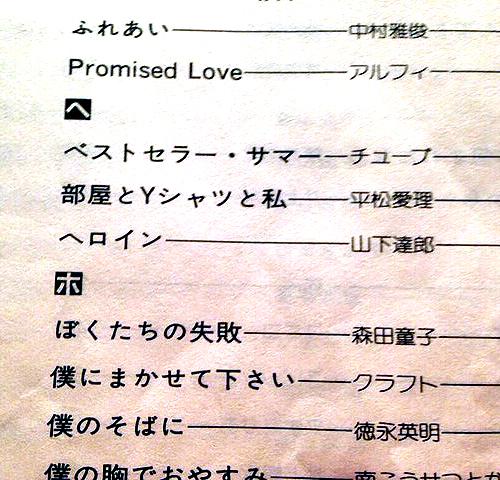 ふれあい 中村雅俊
Promised Love アルフィー
ヘ
ベストセラー・サマー チューブ
部屋とYシャツと私 平松愛理
ヘロイン 山下達郎
ホ
ぼくたちの失敗 森田童子
僕にまかせて下さい クラフト
僕のそばに 徳永英明
僕の胸でおやすみ 南こうせつとか